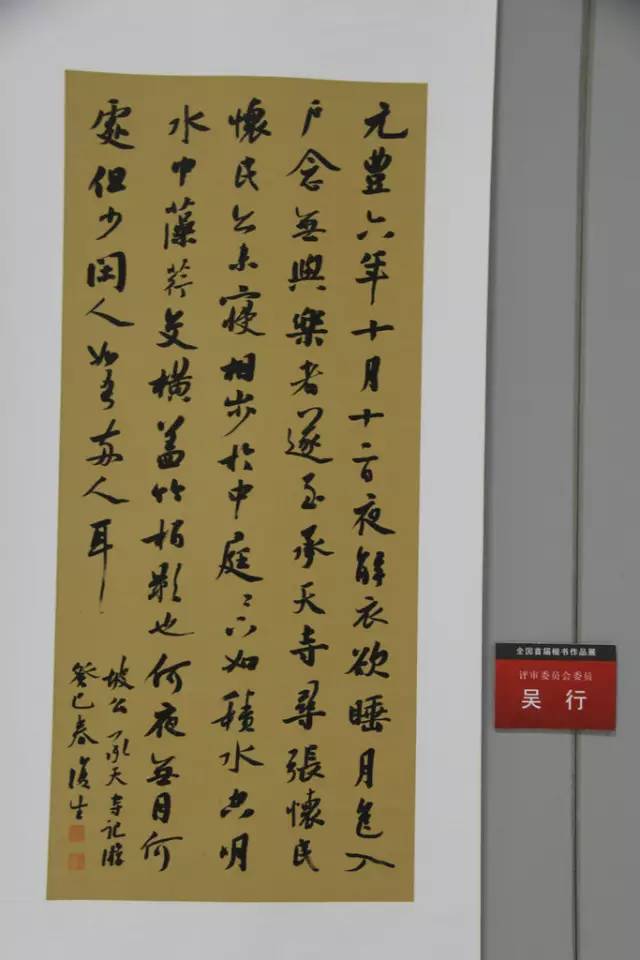 元豐六年十月十二日夜解衣欲睡月色入
户念無與樂者遂至承天寺尋張懷民
懷民亦未寢相步於中庭〻下如積水空明
水中藻荇交横蓋竹柏影也何夜無月何
處但少閑人如吾兩人耳
坡公承天寺記遊
癸巳春
全国首届楷书作品展
评审委员会委员
吴行